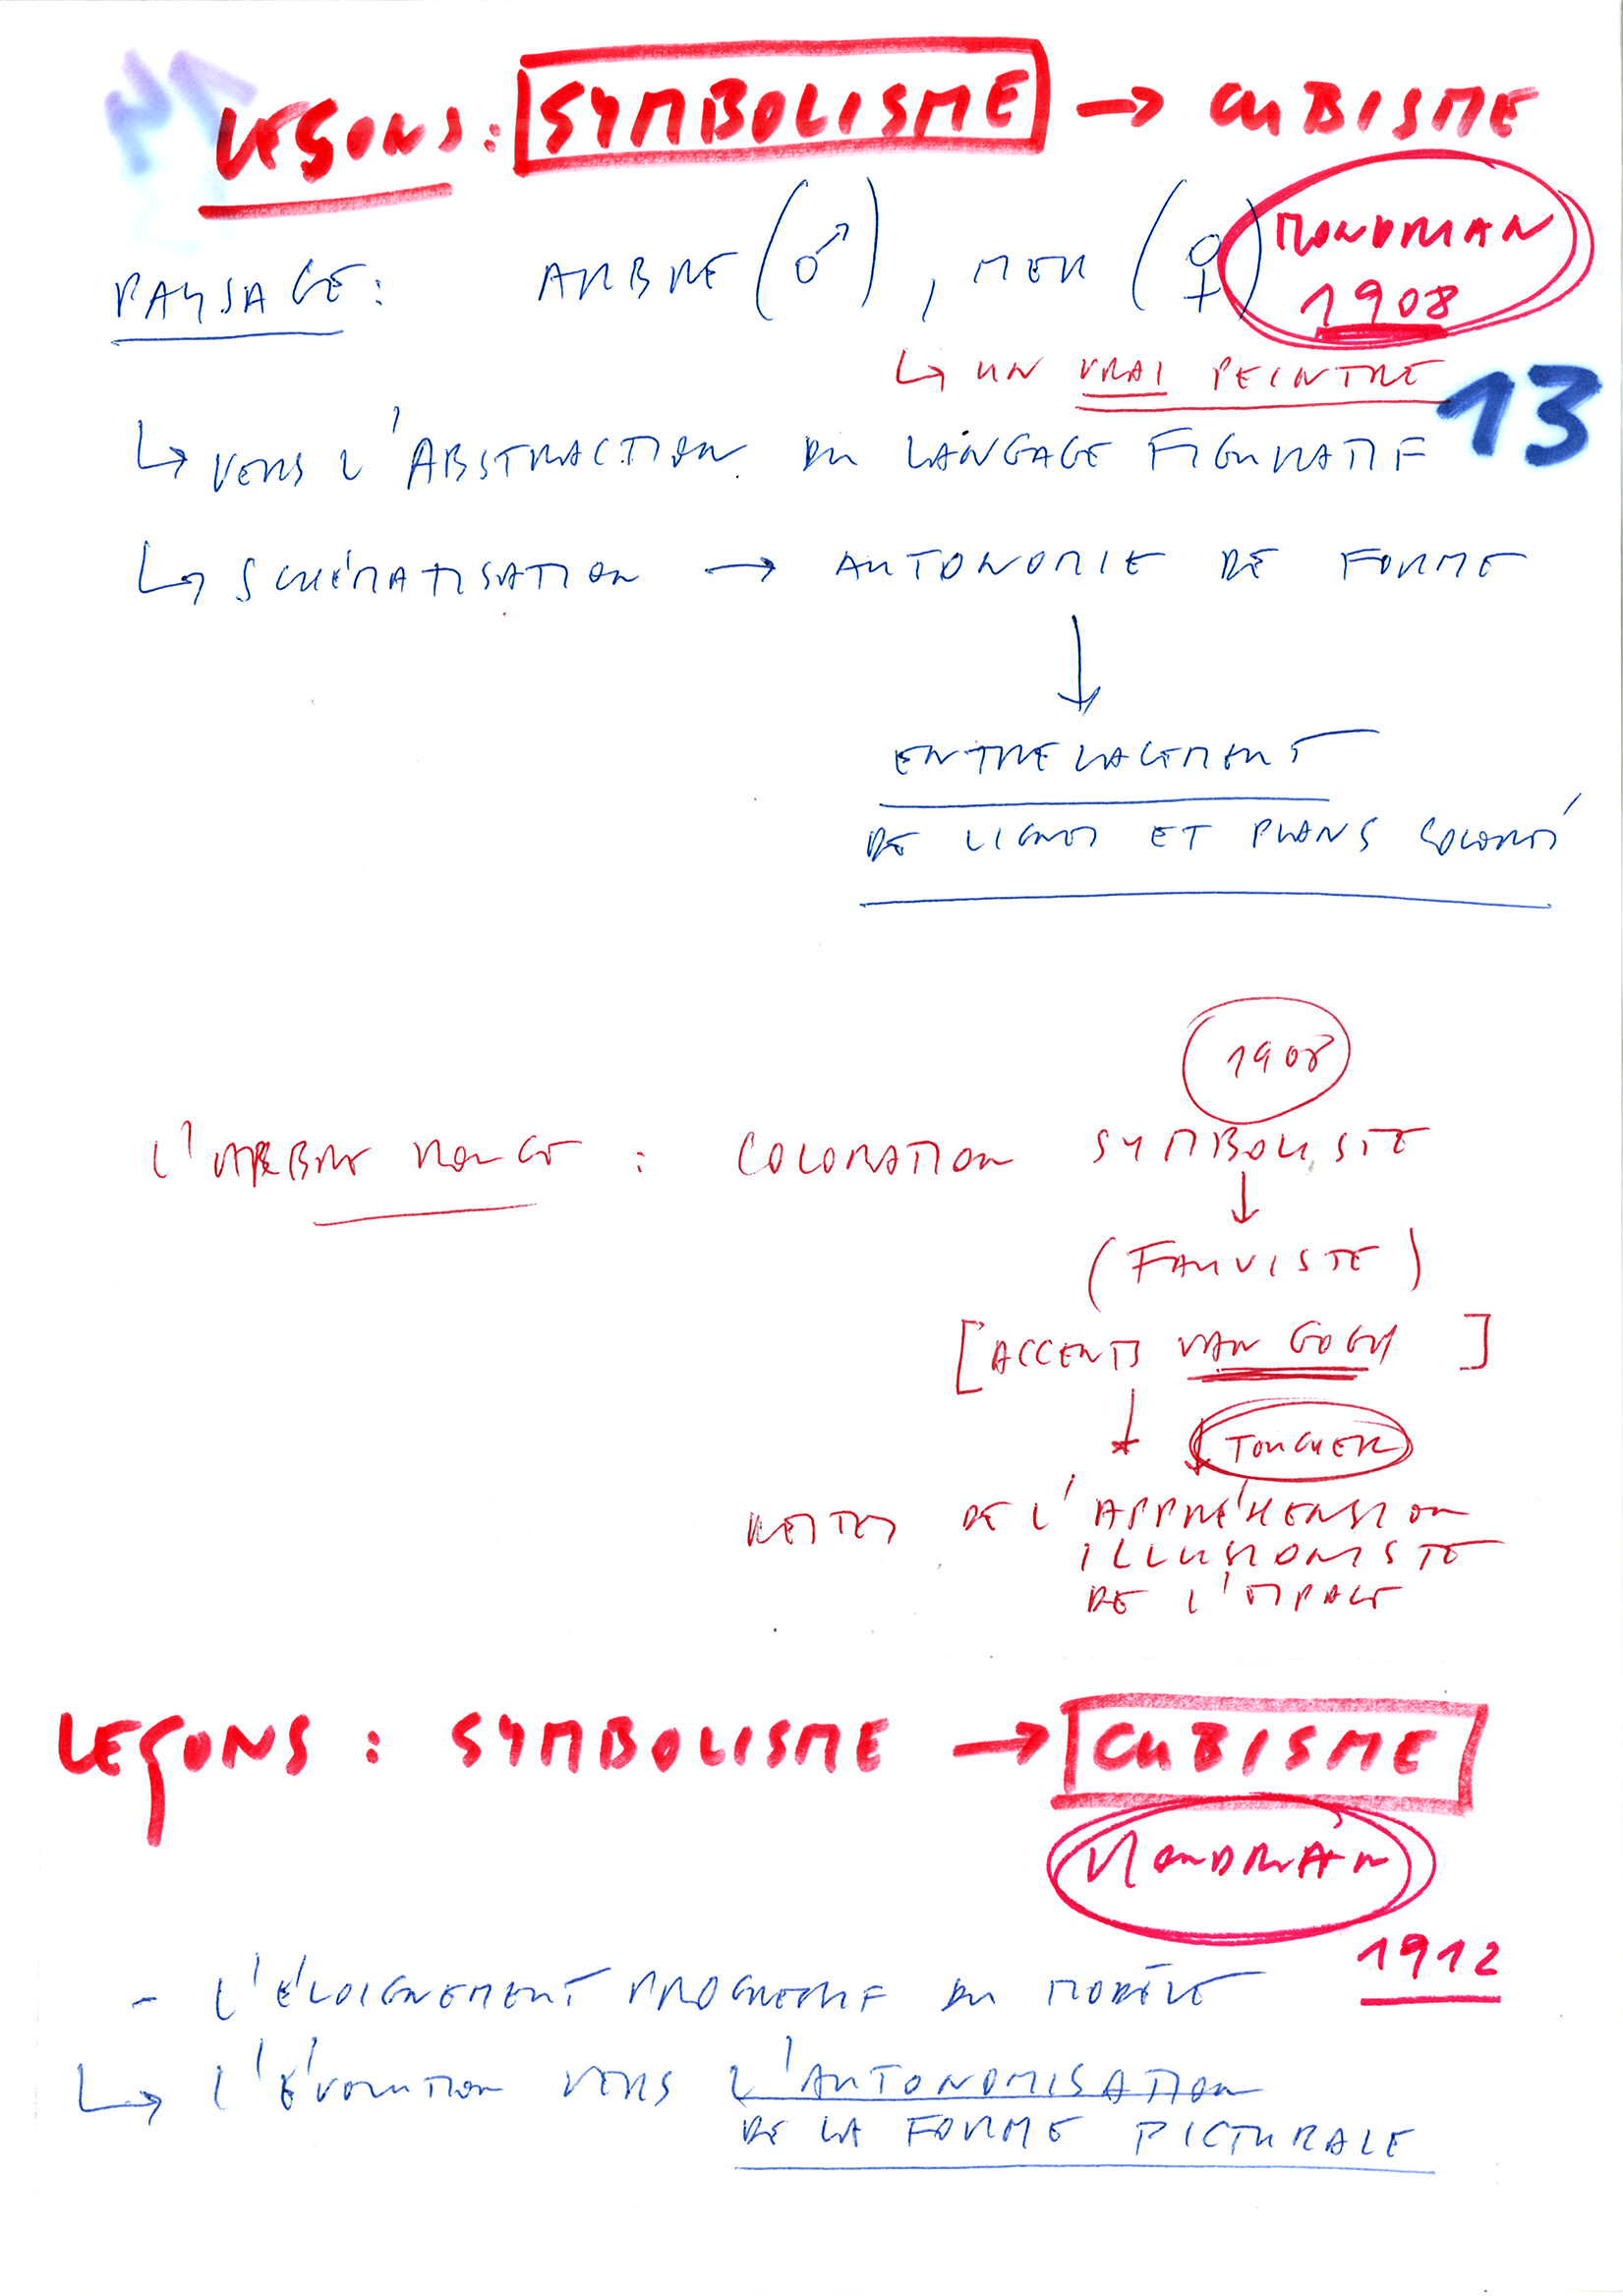 LEÇONS : SYMBOLISME → CUBISME
MONDRIAN
1908
PAYSAGE : ARBRE (♂), MER (♀)
↳ UN VRAI PEINTRE
13
↳ VERS L'ABSTRACTION DU LANGAGE FIGURATIF
↳ SCHÉMATISATION → AUTONOMIE DE FORME
↓
ENTRELACEMENT
DE LIGNES ET PLANS COLORÉS
1908
L'ARBRE ROUGE : COLORATION SYMBOLISTE
↓
(FAUVISTE)
[ACCENTS VAN GOGH]
↓ ↓ TOUCHER
RESTES DE L'APPRÉHENSION
ILLUSIONISTE
DE L'ESPACE
LEÇONS : SYMBOLISME → CUBISME
MONDRIAN
1912
- L'ÉLOIGNEMENT PROGRESSIF DU MODÈLE
↳ L'ÉVOLUTION VERS L'AUTONOMISATION
DE LA FORME PICTURALE